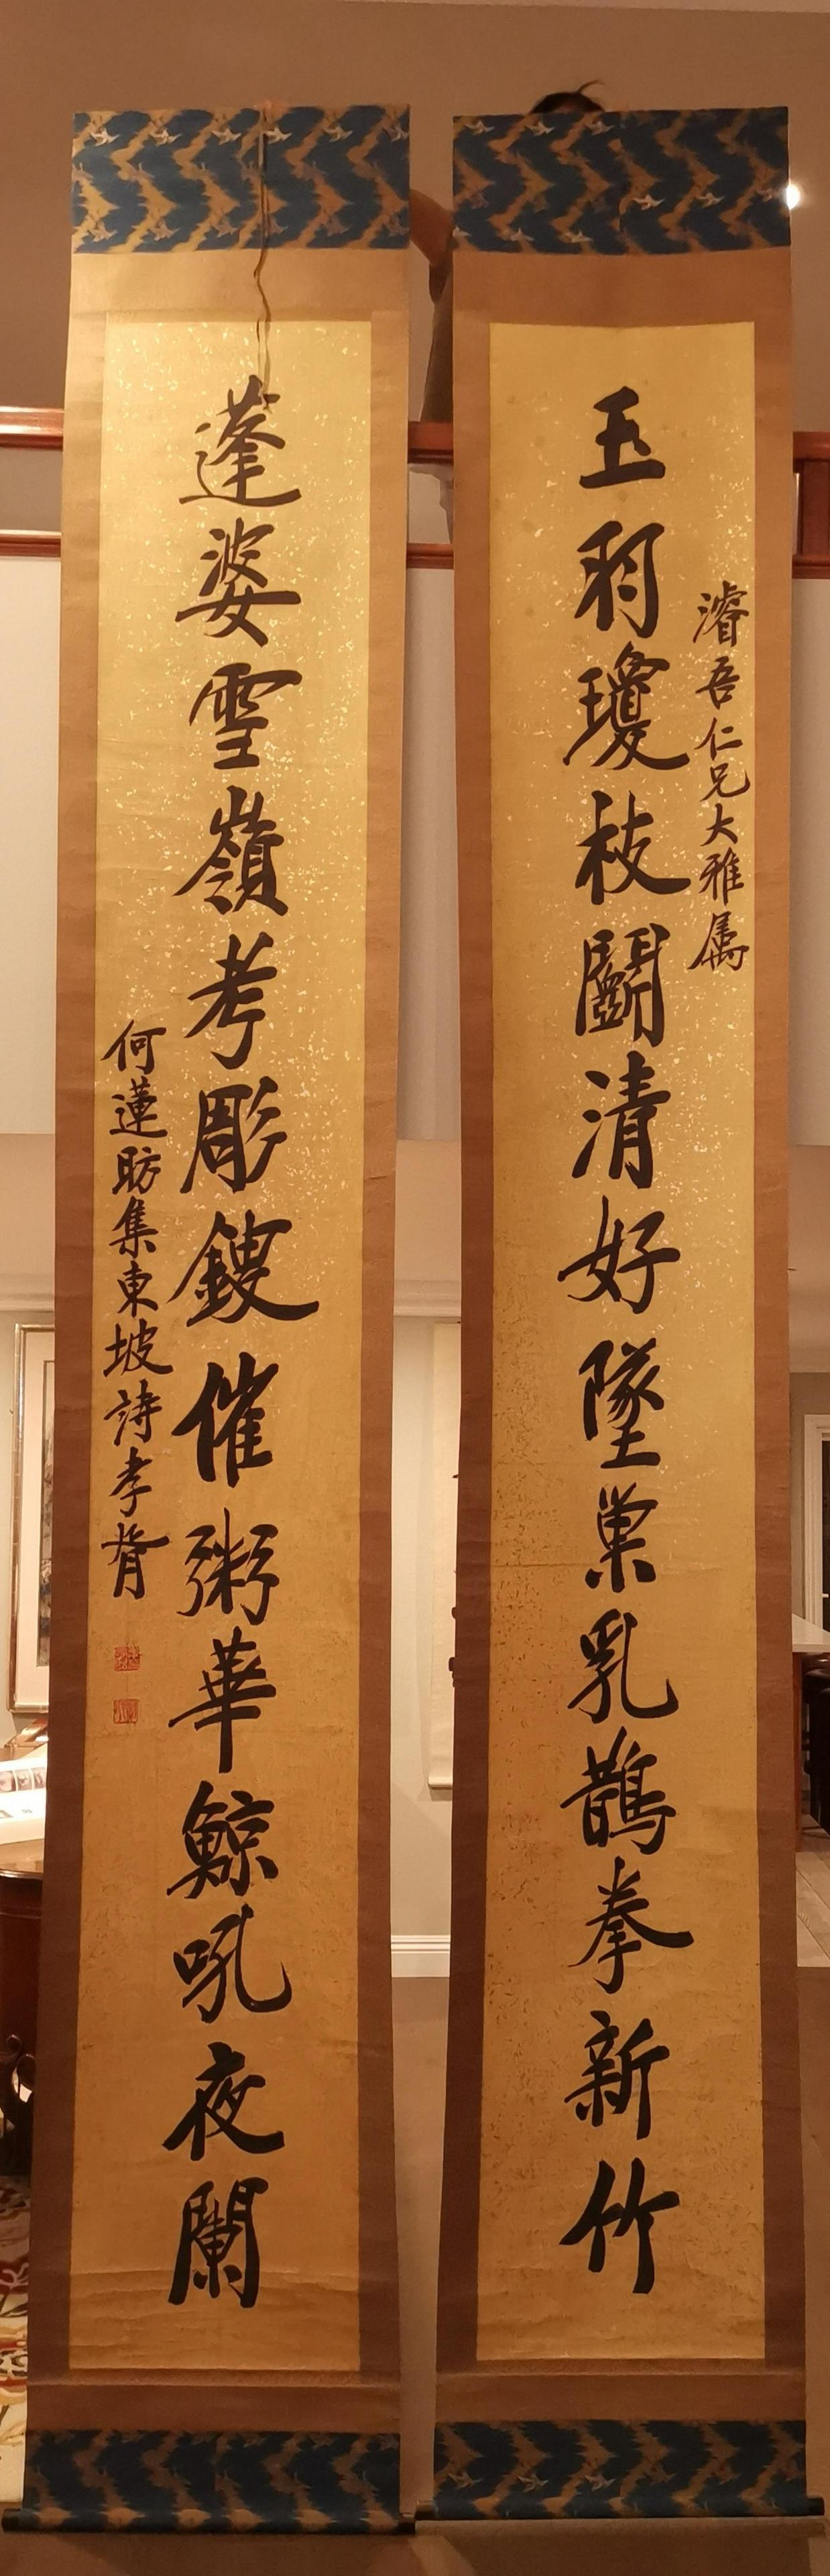 濬吾仁兄大雅屬
玉羽瓊枝鬭清好墜巢乳鵲拳新竹
蓬婆雪嶺考彫鎪催粥華鯨吼夜闌
何蓮昉集東坡詩孝胥